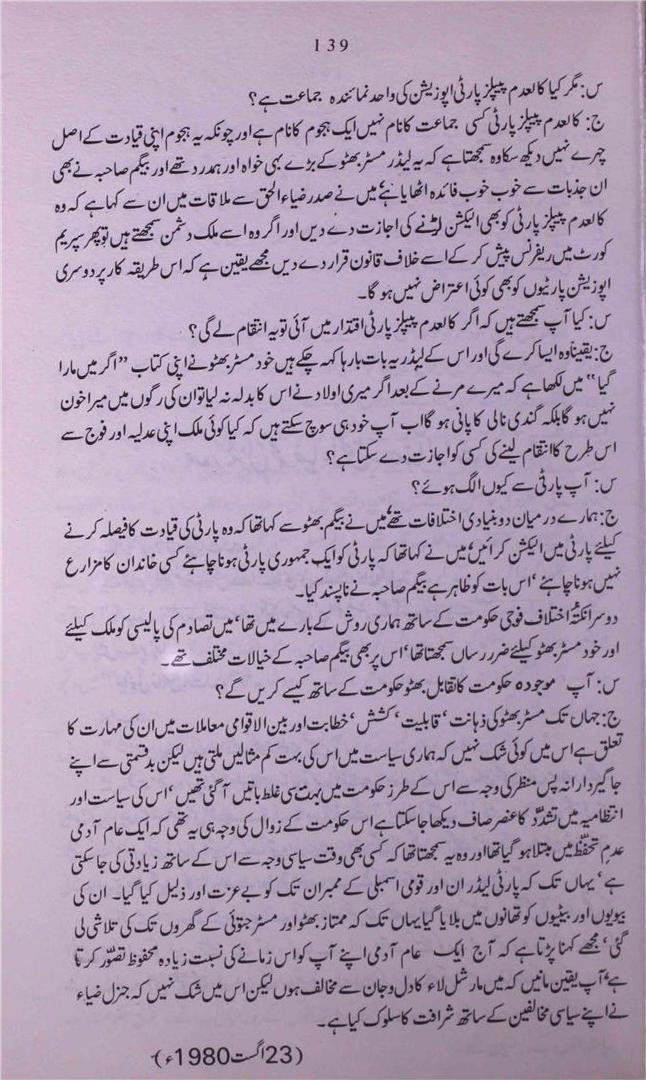 139
س: مگر کیا کالعدم پیپلز پارٹی اپوزیشن کی واحد نمائندہ جماعت ہے؟
ج: کالعدم پیپلز پارٹی کسی جماعت کا نام نہیں ایک ہجوم کا نام ہے اور چونکہ یہ ہجوم اپنی قیادت کے اصل
چہرے نہیں دیکھ سکا وہ سمجھتا ہے کہ یہ لیڈر مسٹر بھٹو کے بڑے بہی خواہ اور ہمدرد تھے اور بیگم صاحبہ نے بھی
ان جذبات سے خوب خوب فائدہ اٹھایا ہے، میں نے صدر ضیاء الحق سے ملاقات میں ان سے کہا ہے کہ وہ
کالعدم پیپلز پارٹی کو بھی الیکشن لڑنے کی اجازت دے دیں اور اگر وہ اسے ملک دشمن سمجھتے ہیں تو پھر سپریم
کورٹ میں ریفرنس پیش کر کے اسے خلاف قانون قرار دے دیں مجھے یقین ہے کہ اس طریقہ کار پر دوسری
اپوزیشن پارٹیوں کو بھی کوئی اعتراض نہیں ہو گا۔
س: کیا آپ سمجھتے ہیں کہ اگر کالعدم پیپلز پارٹی اقتدار میں آئی تو یہ انتقام لے گی؟
ج: یقینا وہ ایسا کرے گی اور اس کے لیڈر یہ بات بارہا کہہ چکے ہیں خود مسٹر بھٹو نے اپنی کتاب ”اگر میں مارا
گیا“ میں لکھا ہے کہ میرے مرنے کے بعد اگر میری اولاد نے اس کا بدلہ نہ لیا تو ان کی رگوں میں میرا خون
نہیں ہو گا بلکہ گندی نالی کا پانی ہو گا اب آپ خود ہی سوچ سکتے ہیں کہ کیا کوئی ملک اپنی عدلیہ اور فوج سے
اس طرح کا انتقام لینے کی کسی کو اجازت دے سکتا ہے؟
س: آپ پارٹی سے کیوں الگ ہوئے؟
ج: ہمارے درمیان دو بنیادی اختلافات تھے، میں نے بیگم بھٹو سے کہا تھا کہ وہ پارٹی کی قیادت کا فیصلہ کرنے
کیلئے پارٹی میں الیکشن کرائیں، میں نے کہا تھا کہ پارٹی کو ایک جمہوری پارٹی ہونا چاہئے کسی خاندان کا مزارع
نہیں ہونا چاہئے ‘اس بات کو ظاہر ہے بیگم صاحبہ نے ناپسند کیا۔
دوسرا نکتۂ اختلاف فوجی حکومت کے ساتھ ہماری روش کے بارے میں تھا‘ میں تصادم کی پالیسی کو ملک کیلئے
اور خود مسٹر بھٹو کیلئے ضرر رساں سمجھتا تھا‘ اس پر بھی بیگم صاحبہ کے خیالات مختلف تھے۔
س: آپ موجودہ حکومت کا تقابل بھٹو حکومت کے ساتھ کیسے کریں گے؟
ج: جہاں تک مسٹر بھٹو کی ذہانت ‘ قابلیت‘ کشش‘ خطابت اور بین الاقوامی معاملات میں ان کی مہارت کا
تعلق ہے اس میں کوئی شک نہیں کہ ہماری سیاست میں اس کی بہت کم مثالیں ملتی ہیں لیکن بدقسمتی سے اپنے
جاگیردارانہ پس منظر کی وجہ سے اس کے طرز حکومت میں بہت سی غلط باتیں آگئی تھیں‘ اس کی سیاست اور
انتظامیہ میں تشدّد کا عنصر صاف دیکھا جا سکتا ہے اس حکومت کے زوال کی وجہ ہی یہ تھی کہ ایک عام آدمی
عدم تحفّظ میں مبتلا ہو گیا تھا اور وہ یہ سمجھتا تھا کہ کسی بھی وقت سیاسی وجہ سے اس کے ساتھ زیادتی کی جا سکتی
ہے‘ یہاں تک کہ پارٹی لیڈران اور قومی اسمبلی کے ممبران تک کو بے عزت اور ذلیل کیا گیا۔ ان کی
بیویوں اور بیٹیوں کو تھانوں میں بلایا گیا یہاں تک کہ ممتاز بھٹو اور مسٹر جتوئی کے گھروں تک کی تلاشی لی
گئی‘ مجھے کہنا پڑتا ہے کہ آج ایک عام آدمی اپنے آپ کو اس زمانے کی نسبت زیادہ محفوظ تصوّر کرتا
ہے‘ آپ یقین مانیں کہ میں مارشل لاء کا دل و جان سے مخالف ہوں لیکن اس میں شک نہیں کہ جنرل ضیاء
نے اپنے سیاسی مخالفین کے ساتھ شرافت کا سلوک کیا ہے۔
(23 اگست 1980ء)